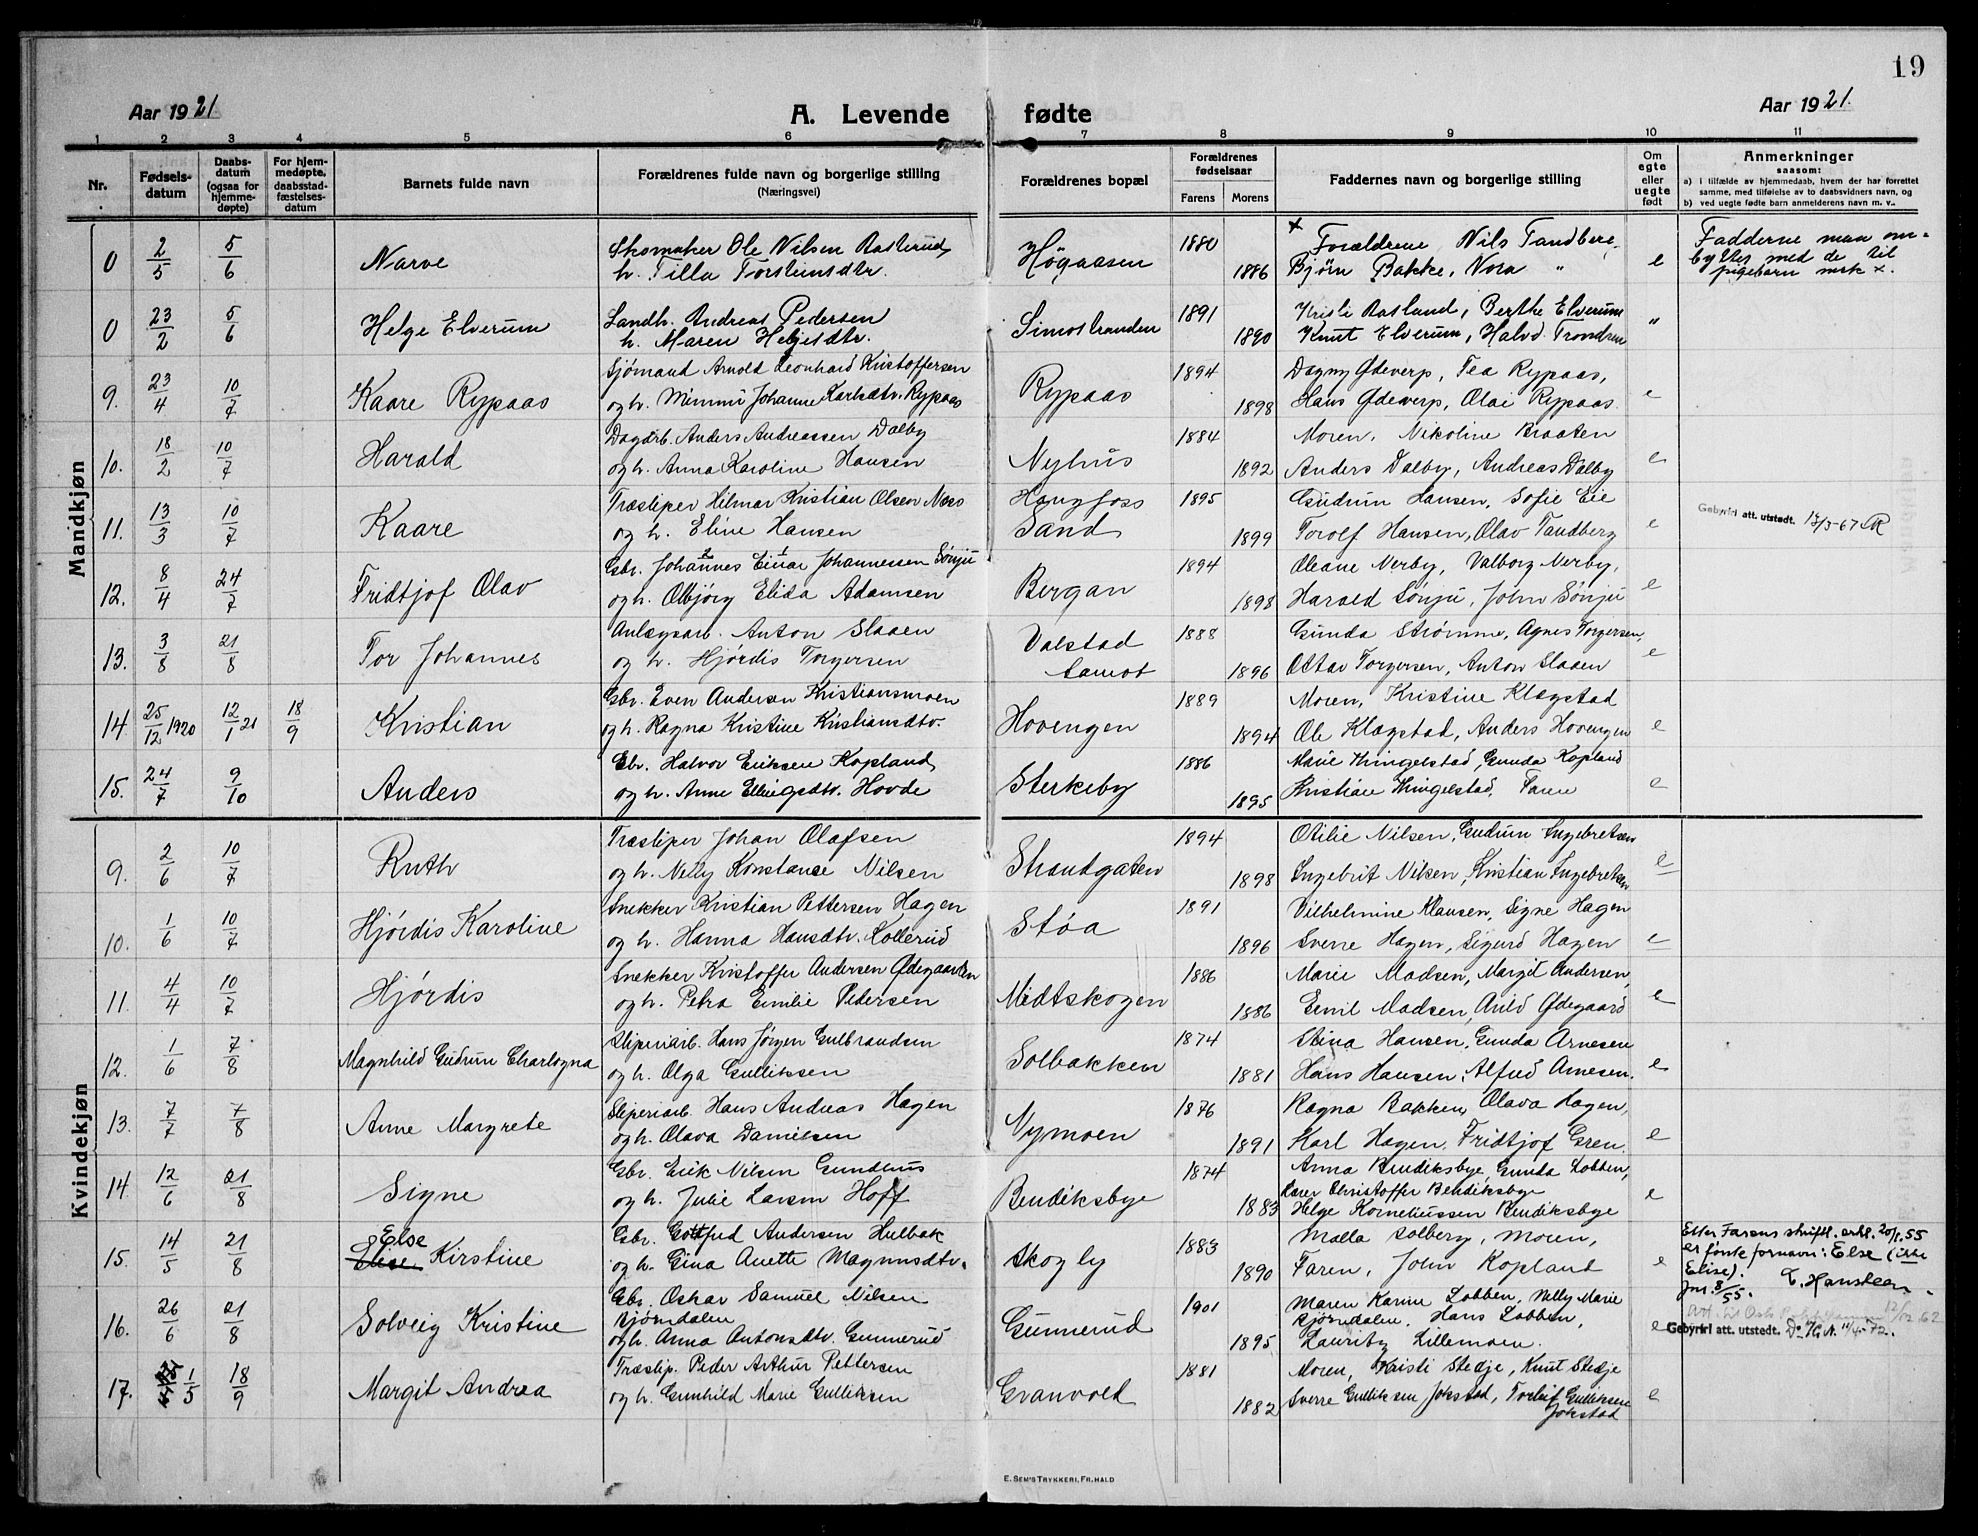 19
Aar 1921
A. Levende fødte
Aar 1921.
1 2 3 4 5 6 7 8 9 10 11
Nr. | Fødsels-datum | Daabs-datum (ogsaa for hjemme-døpte) | For hjem-medøpte, daabsstad-fæstelses-datum | Barnets fulde navn | Forældrenes fulde navn og borgerlige stilling (Næringsvei) | Forældrenes bopæl | Forældrenes fødselsaar Farens Morens | Faddernes navn og borgerlige stilling | Om egte eller uegte født | Anmerkninger saasom:
a) i tilfælde av hjemmedaab, hvem der har forrettet samme, med tilføielse av to daabsvidners navn, og
b) ved uegte fødte barn anmelderens navn m. v..
Mandkjøn
0 2/5 5/6 Narve Skomaker Ole Nilsen Rasterud, Høgaasen 1880 × Forældrene, Nils Tandberg, Fadderne maa om-
h. Tilla Torstensdtr. 1886 Bjørn Bakke, Nora " e byttes med de til
pigebarn mrk ×.
0 23/2 5/6 Helge Elverum Landh. Andreas Pedersen Simostranden 1891 Kristi Rasland, Berthe Elverum
h. Maren Helgesdtr. 1890 Knut Elverum, Halvd. Trondsen "
9. 23/4 10/7 Kaare Rypaas Sjømand Arnold Leonhard Kristoffersen Rypaas 1894 Dagny Ødeverp, Tea Rypaas,
og h. Mimmi Johanne Karlsdtr. Rypaas 1898 Hans Ødeverp, Olai Rypaas. e
10. 18/2 10/7 Harald Dagarb. Anders Andreassen Dalby Nyhus 1884 Moren, Nikoline Braaten
og h. Anna Karoline Hansen 1892 Anders Dalby, Andreas Dalby e
11. 13/3 10/7 Kaare Træsliper Hilmar Kristian Olsen Næs Haugfoss 1895 Gudrun Hansen, Sofie Eie
og h. Eline Hansen Sand 1899 Torolf Hansen, Olav Tandberg e Gebyrfri att. utstedt.
12. 8/4 24/7 Fridtjof Olav Gbr. Johannes 2 Einar 1 Johannessen Sønju Bergan 1894 Oleane Nerby, Valborg Nerby,
og h. Olbjørg Elida Adamsen 1898 Harald Sønju, John Sønju e
13. 3/8 21/8 Tor Johannes Anlægsarb. Anton Slaaen Valstad 1888 Gunda Strømme, Agnes Torgersen,
og h. Hjørdis Torgersen Aamot 1896 Ottar Torgersen, Anton Slaaen e
14. 25/12 1920 12/1 21 18/9 Kristian Gbr. Even Andersen Kristiansmoen Hovengen 1889 Moren, Kristine Klægstad
og h. Ragna Kristine Kristiansdtr. 1894 Ole Klægstad, Anders Hovengen e
15. 24/7 9/10 Anders Gbr. Halvor Eriksen Kopland, Sterkeby 1886 Marie Kingelstad, Gunda Kopland
og h. Anne Ellingsdtr. Hovde 1895 Kristian Kingelstad, Faren e
Kvindekjøn
9. 2/6 10/7 Ruth Træsliper Johan Olafsen Strandgaten 1894 Otilie Nilsen, Gudrun Ingebretsen
og h. Nelly Konstanse Nilsen 1898 Ingebrit Nilsen, Kristian Ingebretsen e
10. 1/6 10/7 Hjørdis Karoline Snekker Kristian Pettersen Hagen Støa 1891 Vilhelmine Klausen, Signe Hagen
og h. Hanna Hansdtr. Kollerud 1896 Sverre Hagen, Sigurd Hagen e
11. 4/4 10/7 Hjørdis Snekker Kristoffer Andersen Ødegaarden Midtskogen 1886 Marie Madsen, Margit Andersen,
og h. Petra Emilie Pedersen 1886 Emil Madsen, Ødegaard e
12. 1/6 7/8 Magnhild Gudrun Charlogna Sliperiarb. Hans Jørgen Gulbrandsen Solbakken 1874 Stina Hansen, Gunda Arnesen
og h. Olga Gulliksen 1881 Hans Hansen, Alfred Arnesen. e
13. 7/7 7/8 Anne Margrete Sliperiarb. Hans Andreas Hagen Nymoen 1876 Ragna Bakken, Olava Hagen,
og h. Olava Danielsen 1891 Karl Hagen, Fridtjof Gren. e
14. 12/6 21/8 Signe Gbr. Erik Nilsen Gundhus Bendiksbye 1874 Anna Bendiksbye, Gunda Lobben,
og h. Julie Larsen Hoff Christoffer Bendiksbye
1883 Helge Korneliussen Bendiksbye e
15. 14/5 21/8 Else Elise Kirstine Gbr. Gottfred Andersen Hulbak Skogly 1883 Malla Solberg, Moren, Etter Farens skriftl. erkl. 20/1.55
og h. Gina Anette Magnusdtr. 1890 Faren, John Kopland e er første fornavn: Else (ikke
Elise).
Jnr. 8/55.
16. 26/6 21/8 Solveig Kristine Gbr. Oskar Samuel Nilsen Gunnerud 1901 Maren Karine Lobben, Nelly Marie
Bjørndalen Bjørndalen. Hans Lobben,
og h. Anna Antonsdtr. Gunnerud 1895 Lauritz Lillemoen. e Gebyrfri att. utstedt.
17. 1/5 18/9 Margit Andrea Træslip. Peder Arthur Pettersen Granvold 1881 Moren, Kristi Stedje, Knut Stedje
og h. Gunhild Marie Gulliksen 1882 Sverre Gulliksen Jokstad, Torleif Gulliksen e
Jokstad
E. SEM'S TRYKKERI, FR.HALD